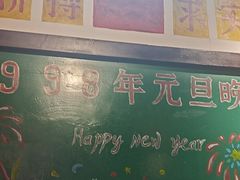 998年元旦晚
Happy new year